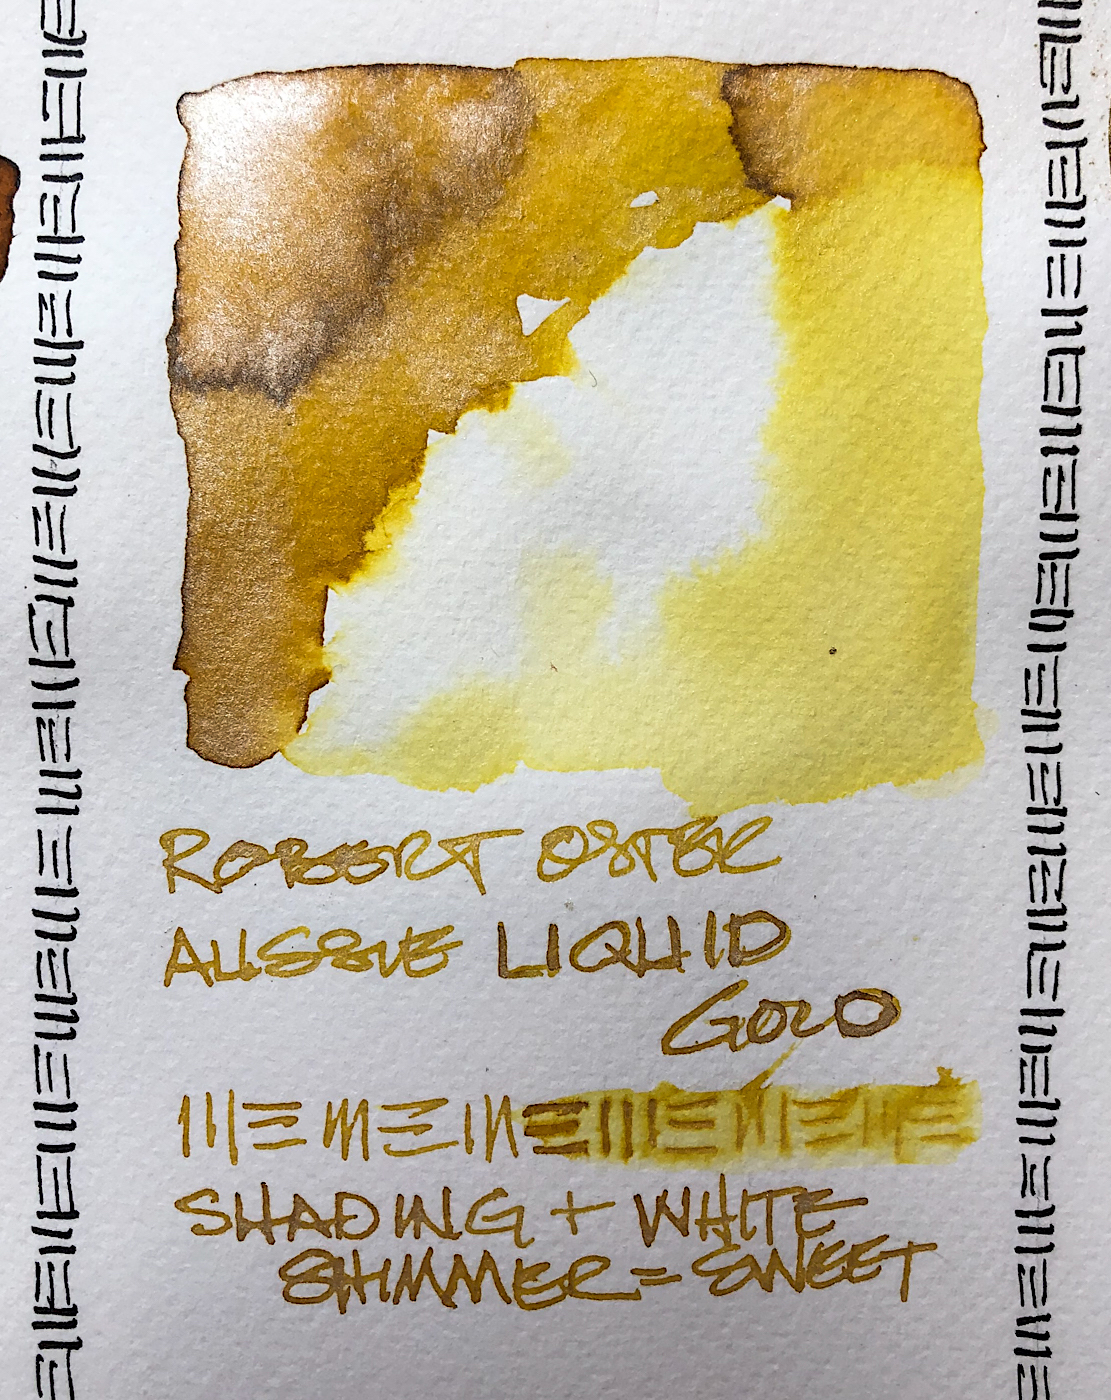 ROBERT OSTER
AUSSIE LIQUID
GOLD
SHADING + WHITE
SHIMMER = SWEET